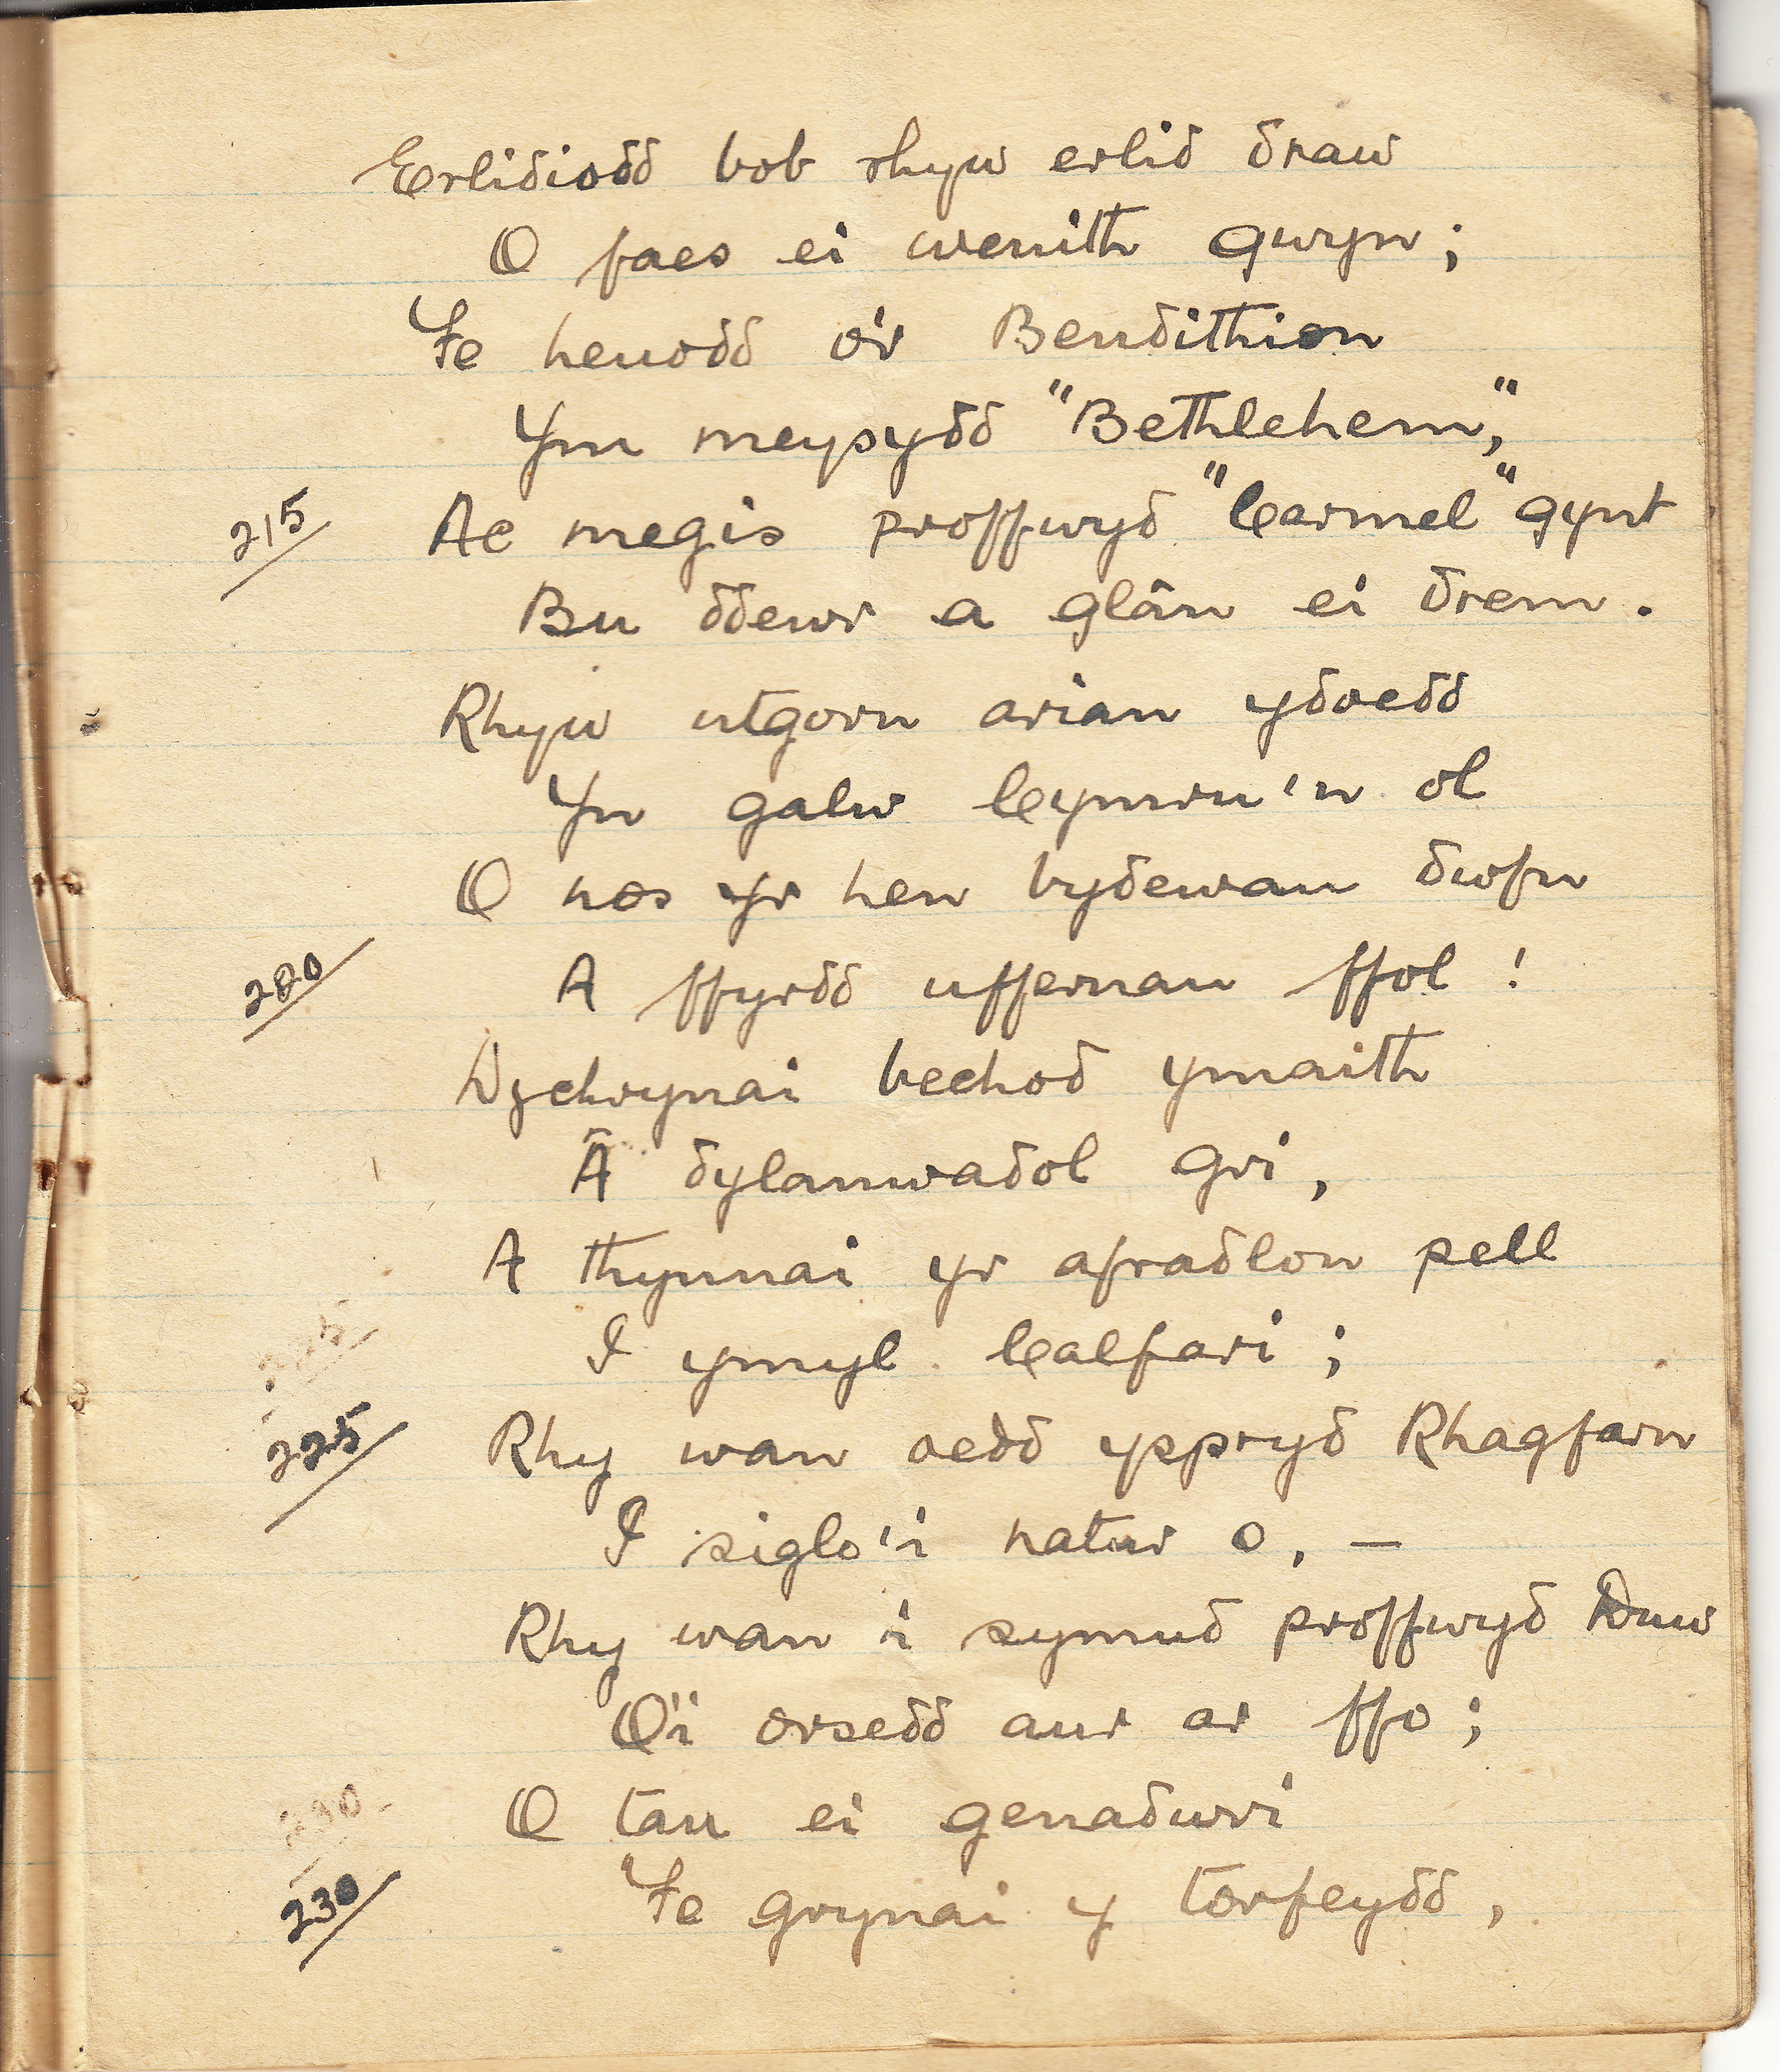 Erlidiodd bob rhyw erlid draw
O faes ei wenith gwyn;
Fe heuodd o'r Bendithion
Ym meysydd "Bethlehem,"
215 Ac megis proffwyd "Carmel" gynt
Bu ddewr a glân ei drem.
Rhyw utgorn arian ydoedd
Yn galw Cymru'n ol
O nos yr hen bydewau dwfn
220 A ffyrdd uffernau ffol!
Dychrynai bechod ymaith
Â dylanwadol gri,
A thynnai yr afradlon pell
I ymyl Calfari;
225 Rhy wan oedd yspryd Rhagfarn
I siglo'i natur o, —
Rhy wan i symud proffwyd Duw
O'i orsedd aur ar ffo;
O tan ei genaduri
230 Fe grynai y torfeydd,